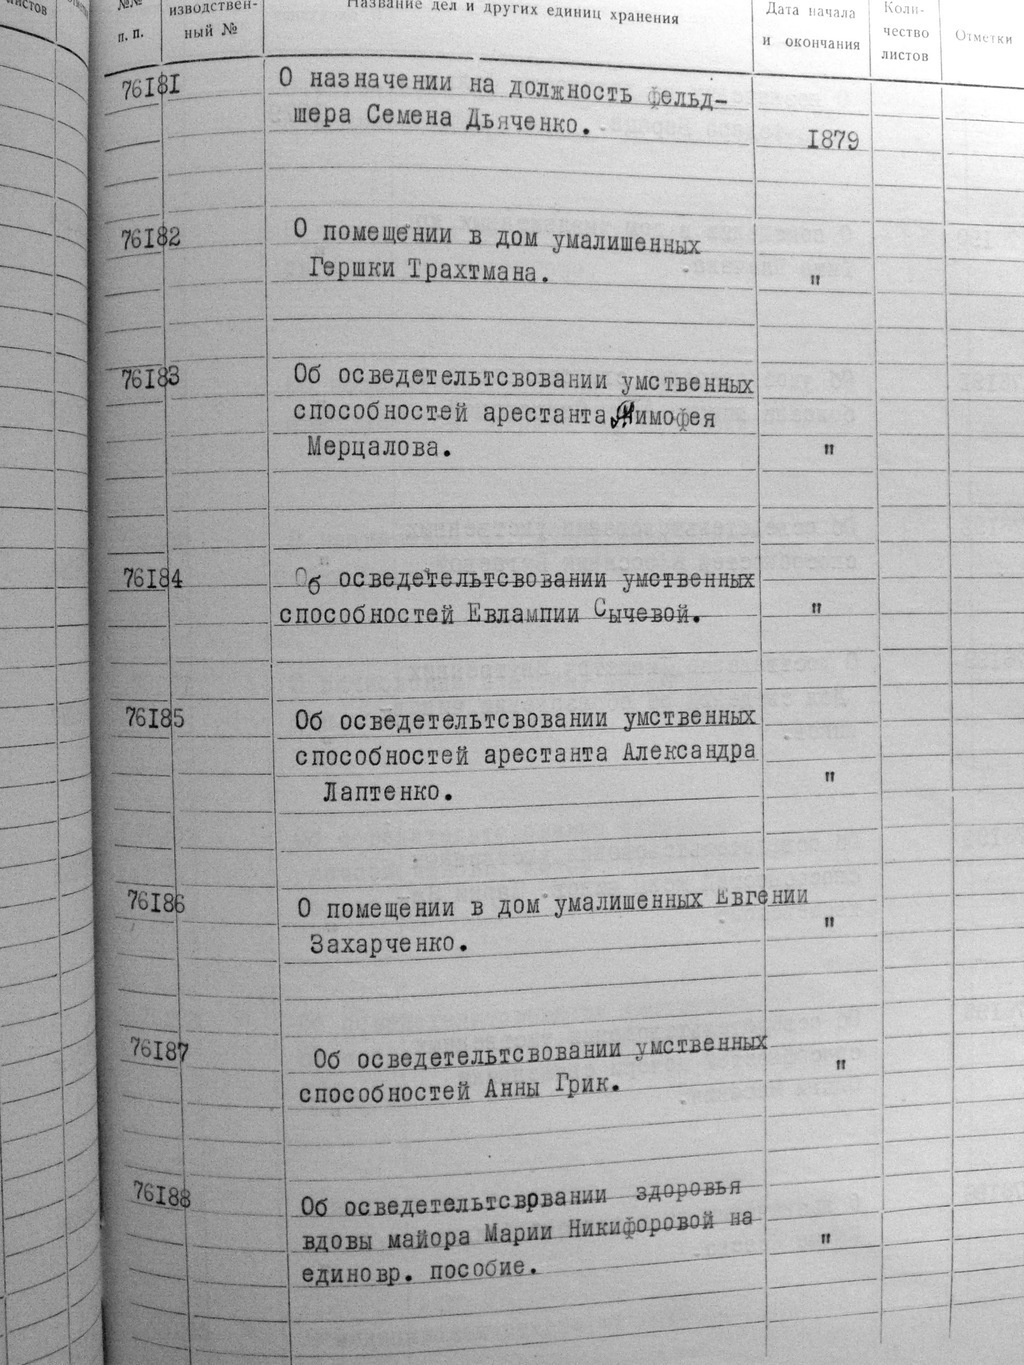 №№
п. п.
изводствен-
ный №
Название дел и других единиц хранения
Дата начала
и окончания
Коли-
чество
листов
Отметки
76181 О назначении на должность фельд-
шера Семена Дьяченко.
1879
76182 О помещении в дом умалишенных
Гершки Трахтмана. "
76183 Об осведетельтсвовании умственных
способностей арестанта Тимофея
Мерцалова. "
76184 Об осведетельтсвовании умственных
способностей Евлампии Сычевой. "
76185 Об осведетельтсвовании умственных
способностей арестанта Александра
Лаптенко. "
76186 О помещении в дом умалишенных Евгении
Захарченко. "
76187 Об осведетельтсвовании умственных
способностей Анны Грик. "
76188 Об осведетельтсвровании здоровья
вдовы майора Марии Никифоровой на
единовр. пособие. "